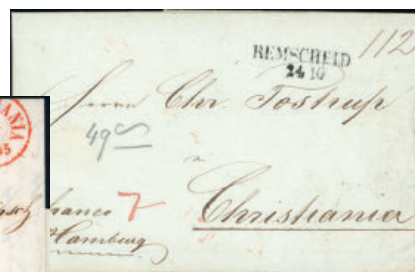 REMSCHEID
24 10
112
Herrn Chr. Tostrup
49
in
Christiania
franco
7
Hamburg
ANIA